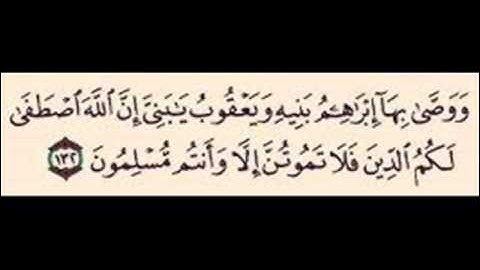 وَوَصَّىٰ بِهَآ إِبۡرَٰهِـۧمُ بَنِيهِ وَيَعۡقُوبُ يَٰبَنِيَّ إِنَّ ٱللَّهَ ٱصۡطَفَىٰ
لَكُمُ ٱلدِّينَ فَلَا تَمُوتُنَّ إِلَّا وَأَنتُم مُّسۡلِمُونَ ١٣٢